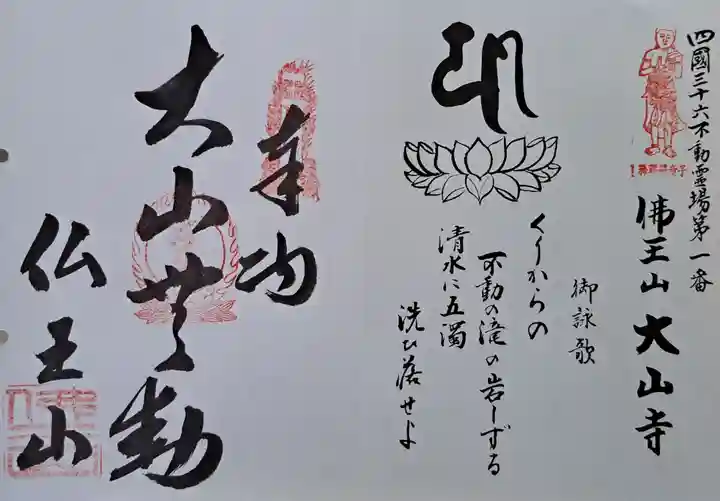 四國三十六不動霊場第一番
佛王山 大山寺
御詠歌
くりからの
不動の滝の岩しずる
清水に五濁
洗ひ落せよ
奉納
大山無動
仏王山